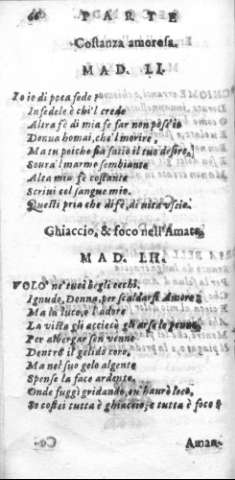 66 PARTE
Costanza amorosa.
MAD. LI.
Io io di poca fede?
Infedele è chi'l crede
Altra fè di mia fe far non poss'io
Donna homai, che'l morire;
Ma tu poiche fia satio il tuo desire,
Soura'l marmo sembiante
Alta mia fè costante
Scriui col sangue mio.
Questi pria che di fè, di vita vscio.
Ghiaccio, & foco nell'Amata.
MAD. LII.
VOLO ne' tuoi begli occhi,
Ignudo, Donna, per scaldarsi Amore;
Ma la luce, e l'ardore
La vista gli acciecò gli arse le penne;
Per albergar sen venne
Dentro il gelido core,
Ma nel suo gelo algente
Spense la face ardente.
Onde fuggì gridando, ou'haurò loco,
Se costei tutta è ghiaccio, e tutta è foco?
Co- Aman-